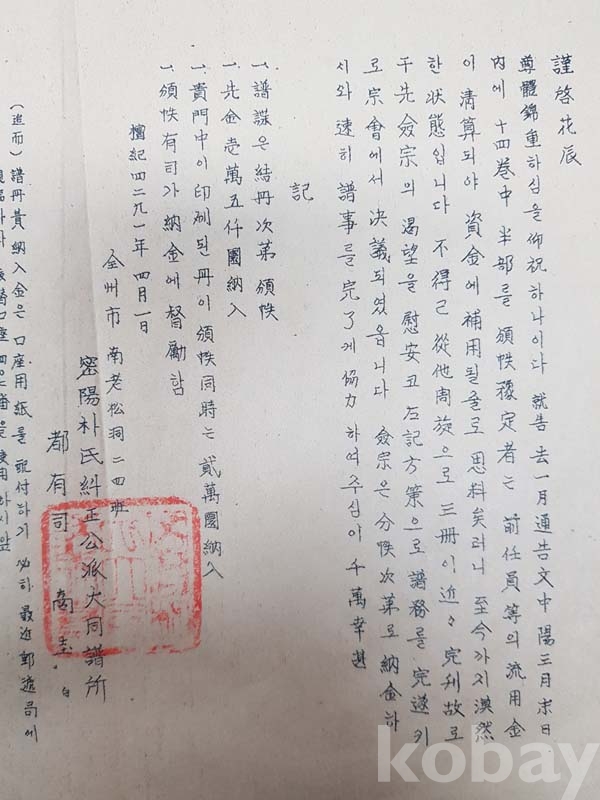 謹啓花辰
尊體錦重하심을 仰祝하나이다 就告 去一月 通告文中 陽三月末日
內에 十四卷中 半部를 頒帙豫定者는 前任員等의 流用金
이 淸算되야 資金에 補用될줄로 思料矣러니 至今까지 漠然
한 狀態입니다 不得已 從他周旋으로 三冊이 近々 完刊故로
于先 僉宗의 渴望을 慰安코 左記方策으로 譜務를 完遂키
로 宗會에서 決議되였읍니다 僉宗은 分帙次第로 納金하
시와 速히 譜事를 完了게 協力하여주심이 千萬幸甚
記
一. 譜諜은 結冊次第 頒帙
一. 先金 壱萬五仟圜 納入
一. 貴門中이 印刷된 冊이 頒帙同時는 貳萬圜納入
一. 頒帙有司가 納金에 督勵함
檀紀四二九一年 四月一日
全州市 南老松洞 二四班
密陽朴氏糾正公派大同譜所
都有司
(追而) 譜冊費納入金은 口座用紙를 配付하기 必히 最近郵遞局에
kobay